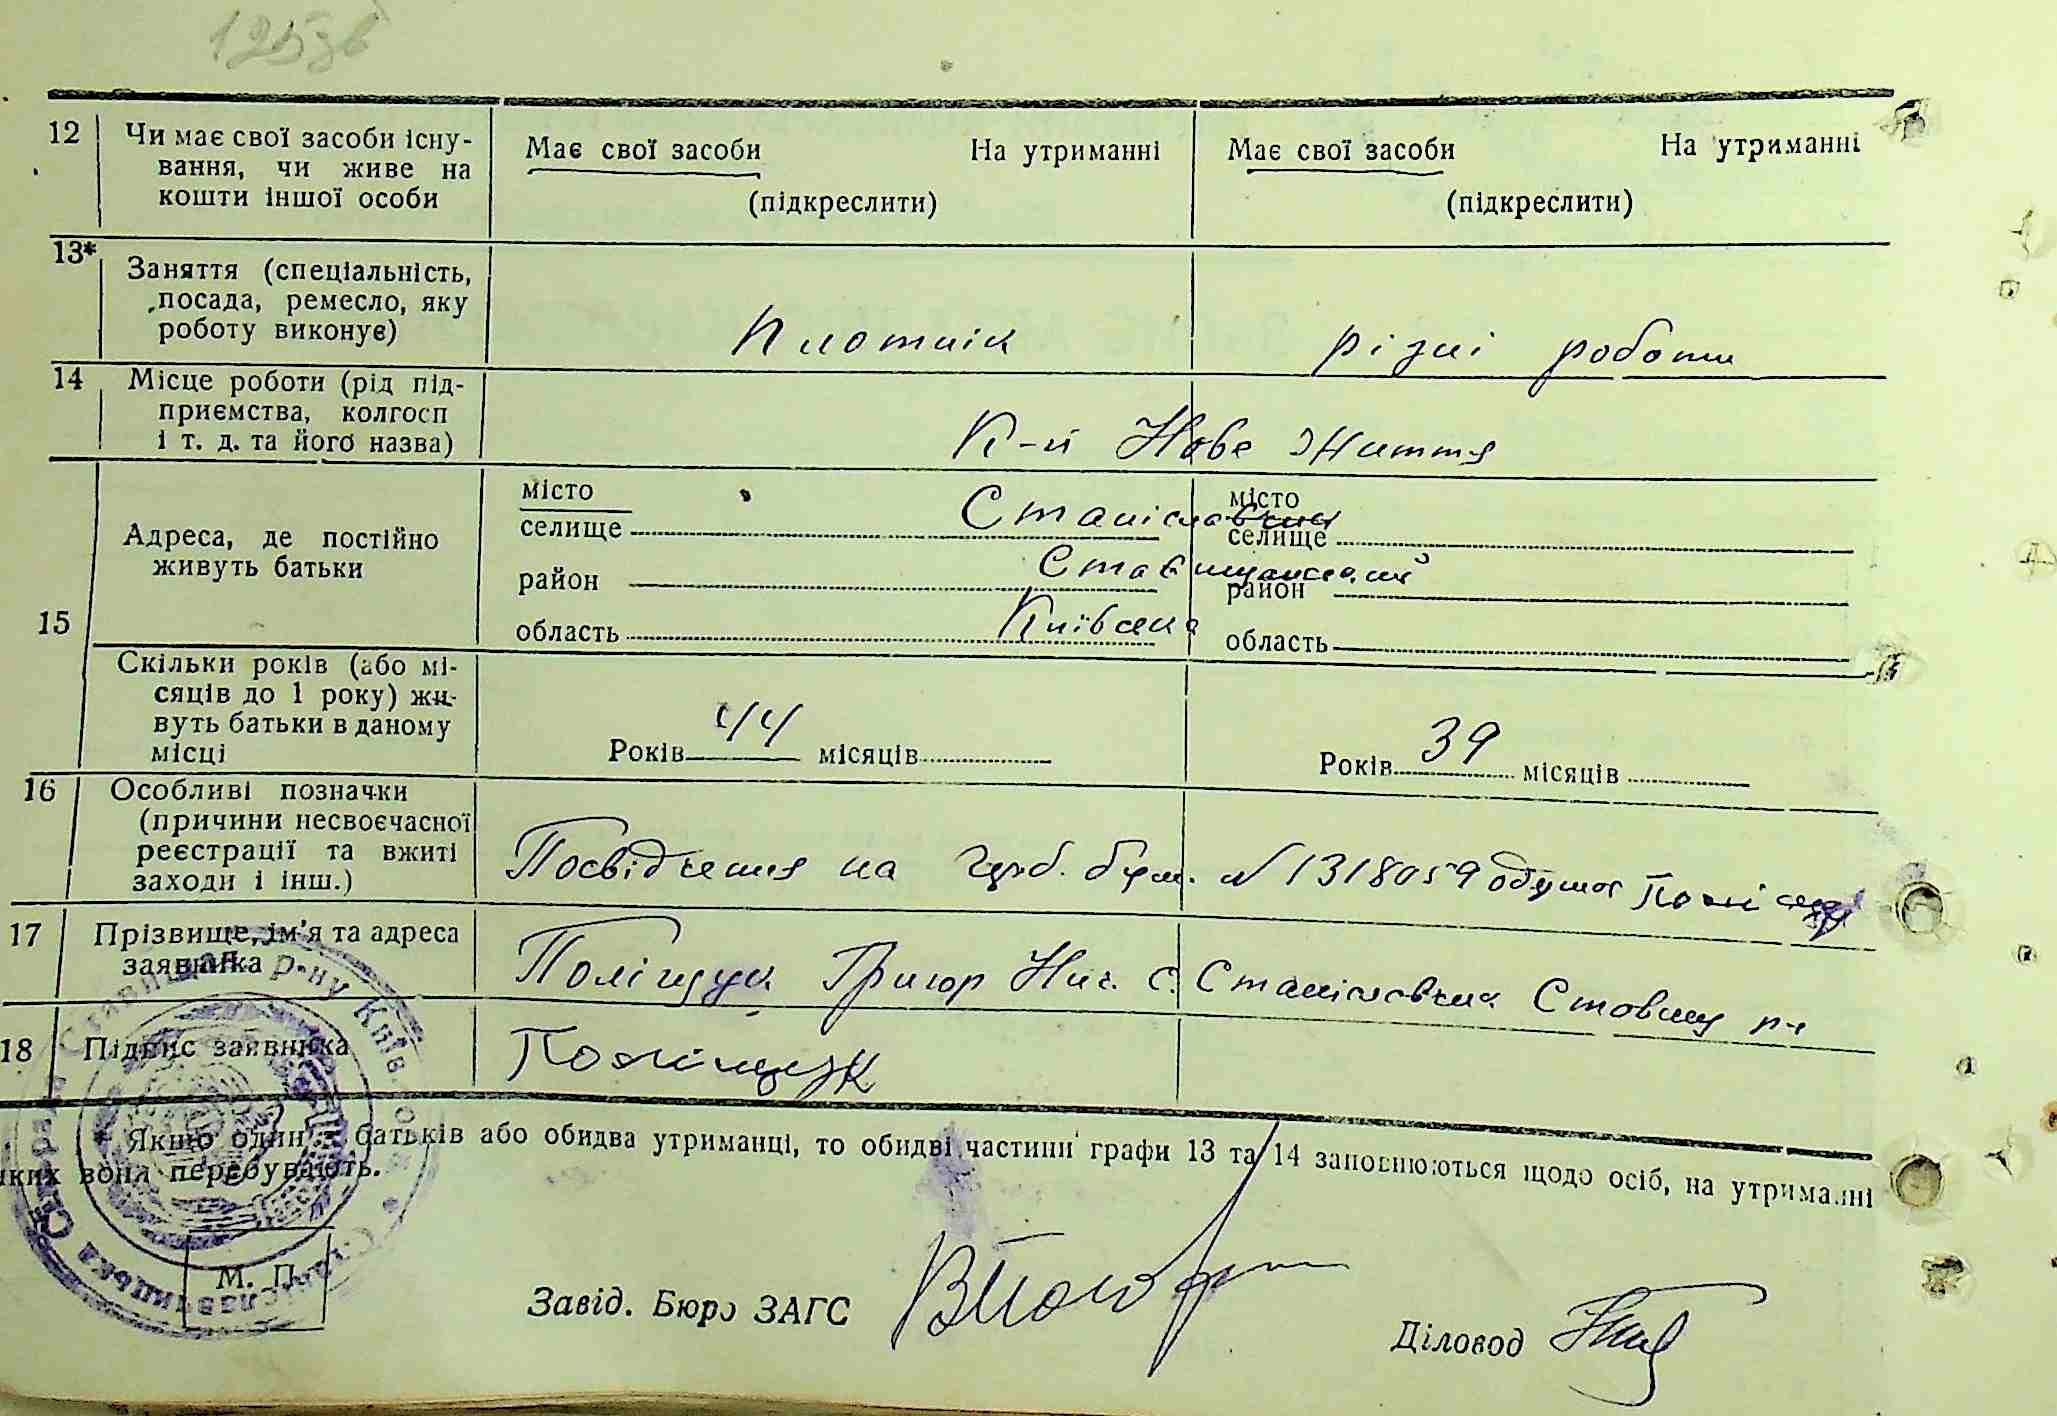 125зв
12 Чи має свої засоби існу-
вання, чи живе на
кошти іншої особи
Має свої засоби На утриманні
(підкреслити)
Має свої засоби На утриманні
(підкреслити)
13* Заняття (спеціальність,
посада, ремесло, яку
роботу виконує)
Плотнік
різні роботи
14 Місце роботи (рід під-
приємства, колгосп
і т. д. та його назва)
К-п Нове Життя
15
Адреса, де постійно
живуть батьки
місто
селище Станіславчик
район Ставищанський
область Київська
місто
селище
район
область
Скільки років (або мі-
сяців до 1 року) жи-
вуть батьки в даному
місці
Років 44 місяців
Років 39 місяців
16 Особливі позначки
(причини несвоєчасної
реєстрації та вжиті
заходи і інш.)
Посвідчення на № 1318059
17 Прізвище, ім'я та адреса
заявника
Поліщук Григор Ник. с. Станіславчик Ставищ р-н
18 Підпис заявника
Поліщук
* Якщо один з батьків або обидва утриманці, то обидві частини графи 13 та 14 заповнюються щодо осіб, на утриманні
яких вони перебувають.
М. П.
Завід. Бюро ЗАГС
Діловод